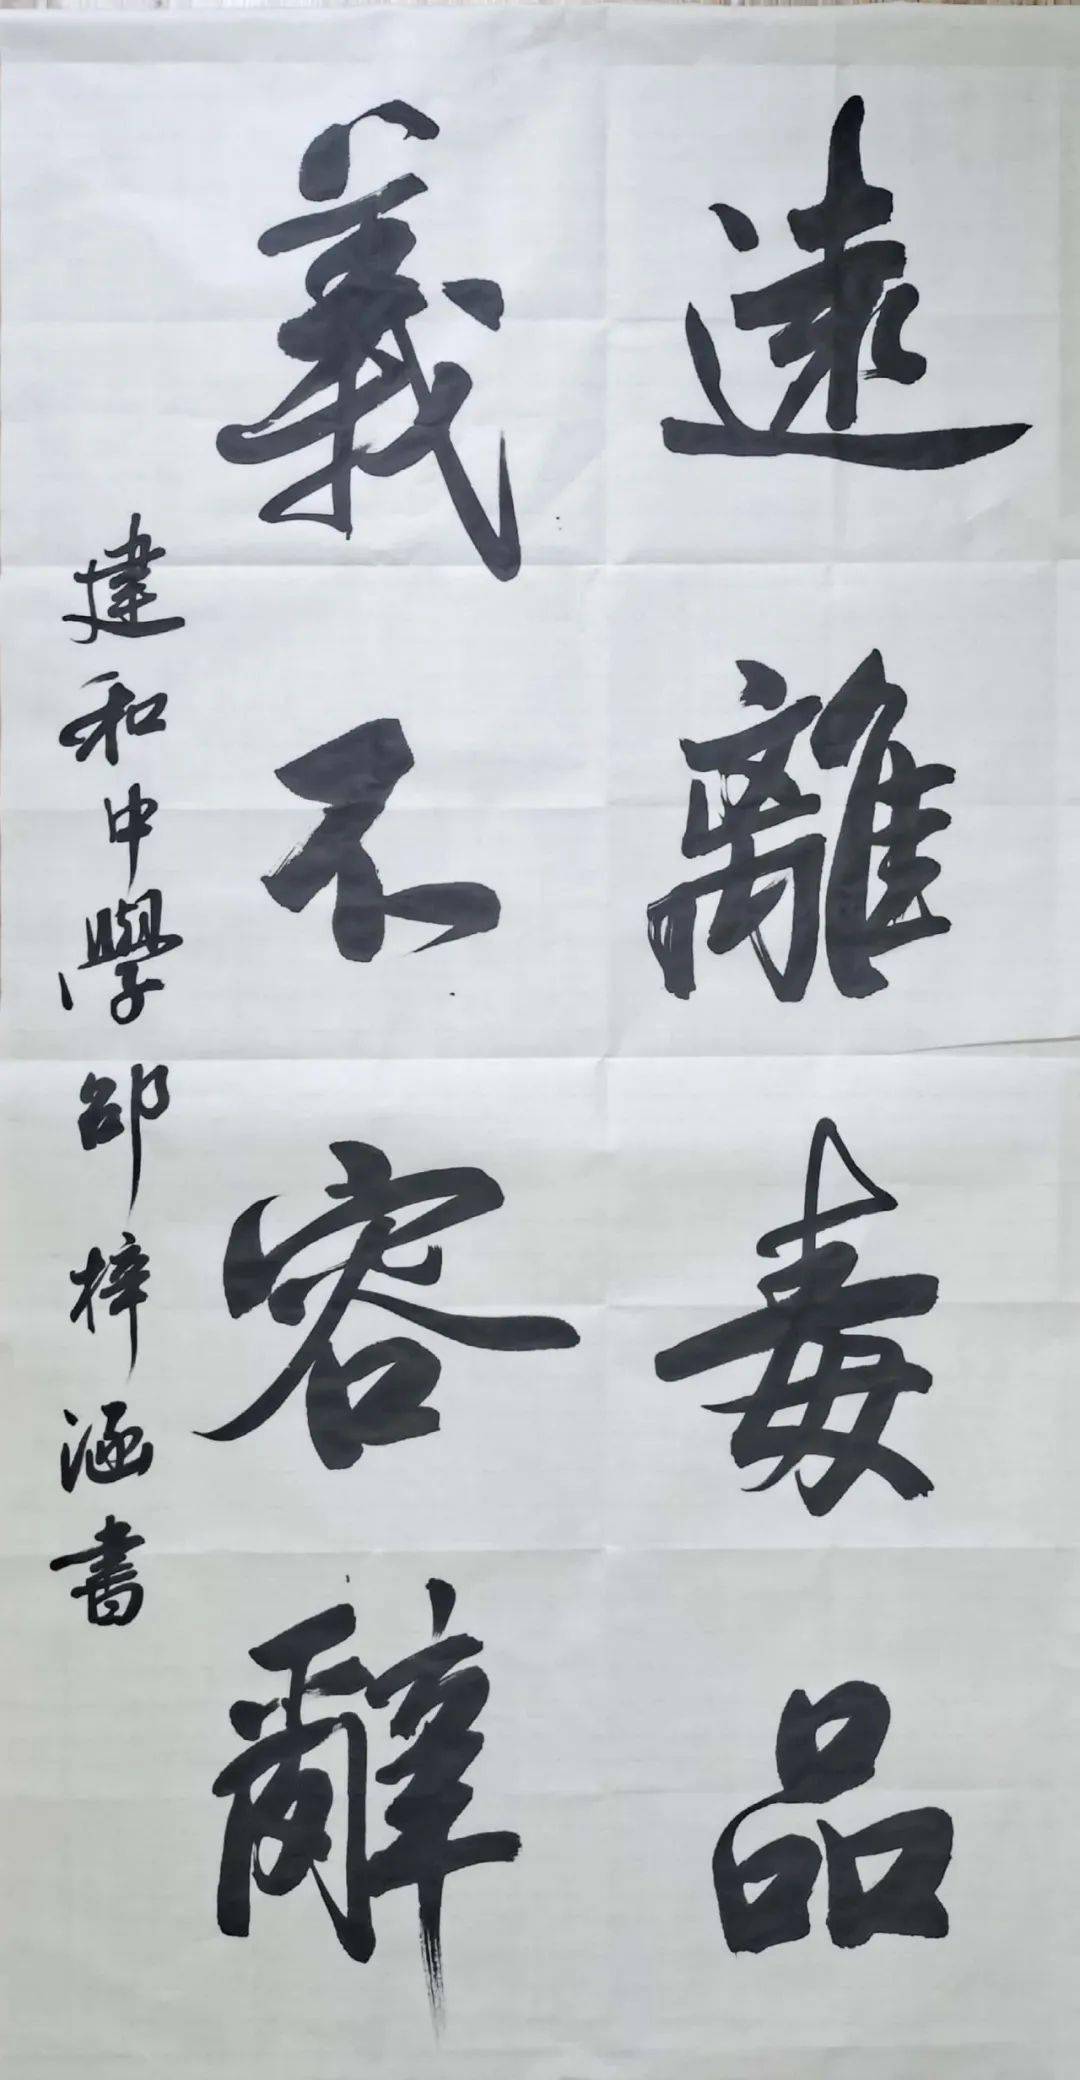 遠離毒品
義不容辭
建和中學邵梓涵書